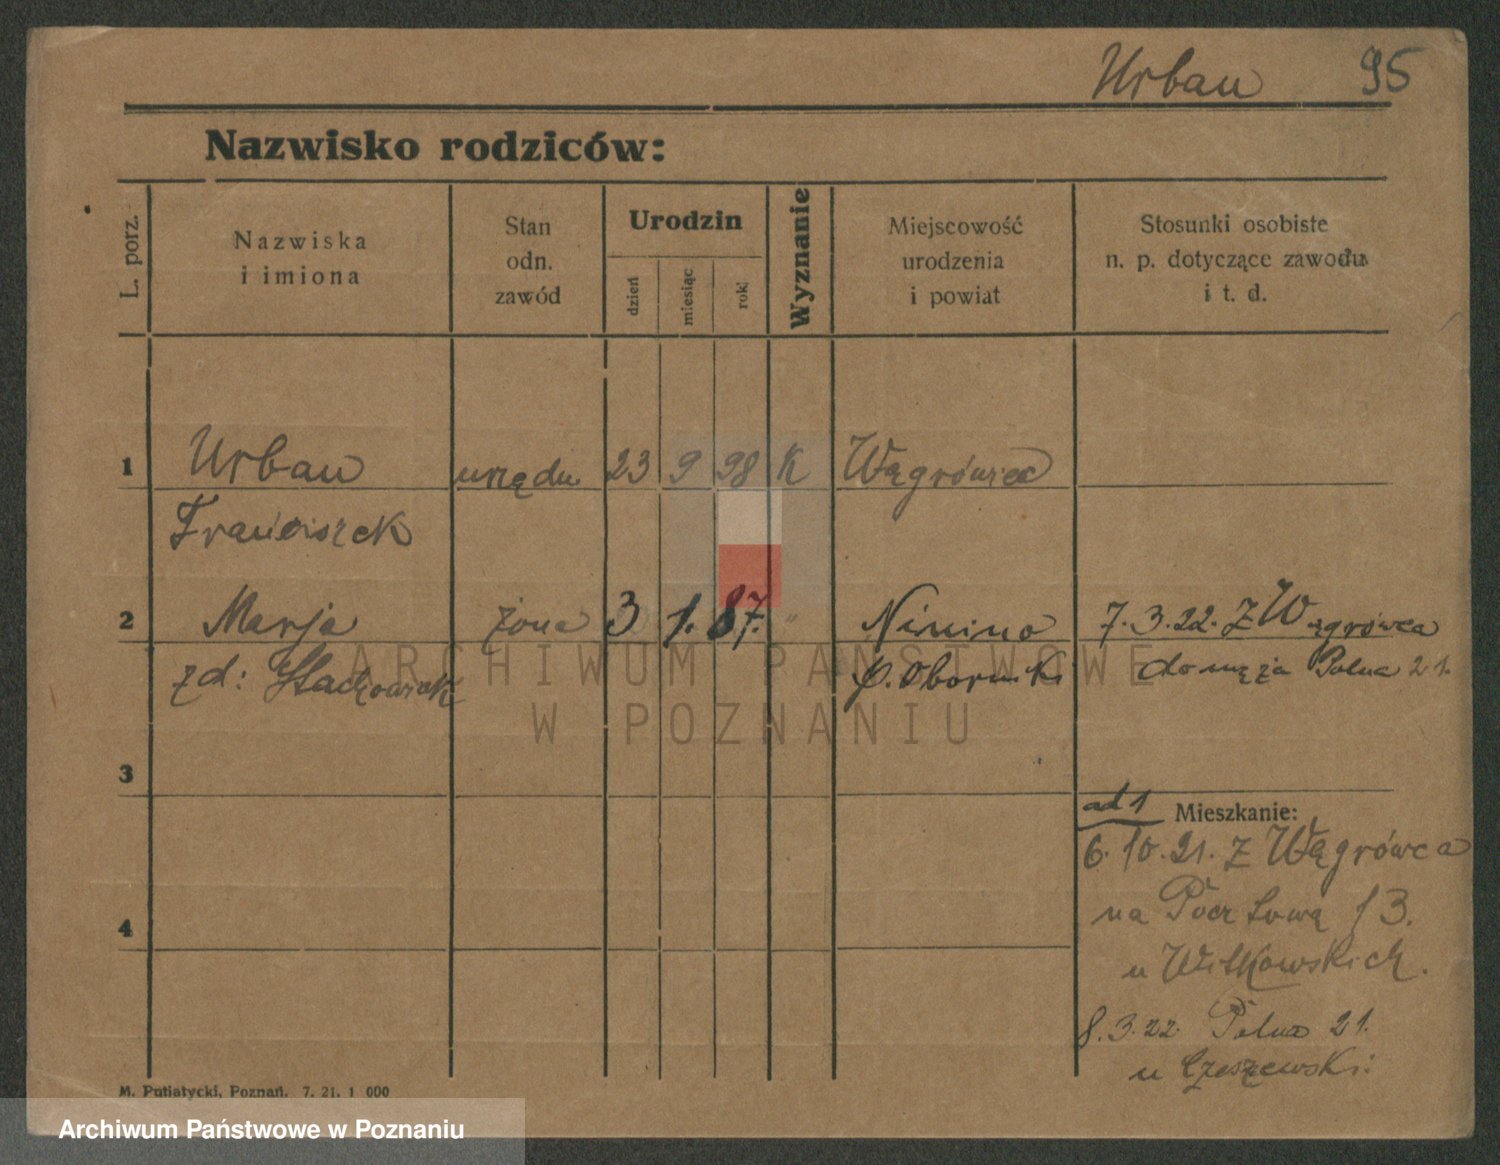 Urban 95
Nazwisko rodziców:
L. porz.
Nazwiska
i imiona
Stan
odn.
zawód
Urodzin
dzień
miesiąc
rok
Wyznanie
Miejscowość
urodzenia
i powiat
Stosunki osobiste
n. p. dotyczące zawodu
i t. d.
1 Urban urzędn 23 9 98 K Wągrówiec
Franciszek
2 Marja żona 3 1. 87. " Ninino 7. 3. 22. z Wągrówca
zd: p. Oborniki do męża Polna 21.
3
ad 1 Mieszkanie:
6. 10. 21. z Wągrówca
na Pocztową 13.
4
u Witkowskich.
8. 3. 22 Polna 21.
u
M. Putiatycki, Poznań. 7. 21. 1 000
ARCHIWUM PAŃSTWOWE
W POZNANIU
Archiwum Państwowe w Poznaniu